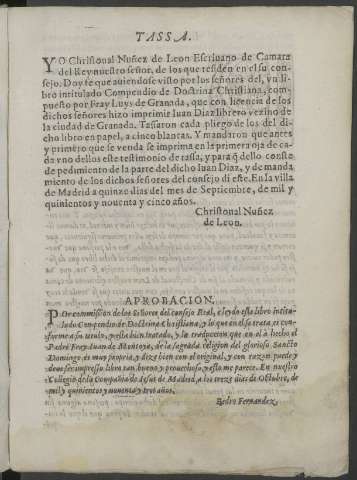 TASSA.
YO Christoual Nuñez de Leon Escriuano de Camara
del Rey nuestro señor, de los que residen en el su con-
sejo. Doy fe que auiendose visto por los señores del, vn li-
bro intitulado Compendio de Doctrina Christiana, com-
puesto por Fray Luys de Granada, que con licencia de los
dichos señores hizo imprimir Iuan Diaz librero vezino de
la ciudad de Granada. Tassaron cada pliego de los del di-
cho libro en papel, a cinco blancas. Y mandaron que antes
y primero que se venda se imprima en la primera oja de ca-
da vno dellos este testimonio de tassa, y para q̃ dello conste
de pedimiento de la parte del dicho Iuan Diaz, y de manda
miento de los dichos señores del consejo di este. En la villa
de Madrid a quinze dias del mes de Septiembre, de mil y
quinientos y nouenta y cinco años.
Christoual Nuñez
de Leon.
APROBACION.
POr comission de los Señores del consejo Real, e leydo este libro intitu-
lado Compendio de Doctrina Christiana, y lo que en el se trata, es con-
forme a su titulo, y esta bien tratado, y la traducion que en el a hecho el
Padre Fray Iuan de Montoya, de la sagrada religion del glorioso Sancto
Domingo, es muy propria, y dize bien con el original, y con razon puede y
deue ser impresso libro tan bueno y prouechoso, y esto me parece. En nuestro
Collegio de la Compañia de Iesus de Madrid, a los treze dias de Octubre, de
mil y quinientos y nouenta y tres años.
Pedro Fernandez.